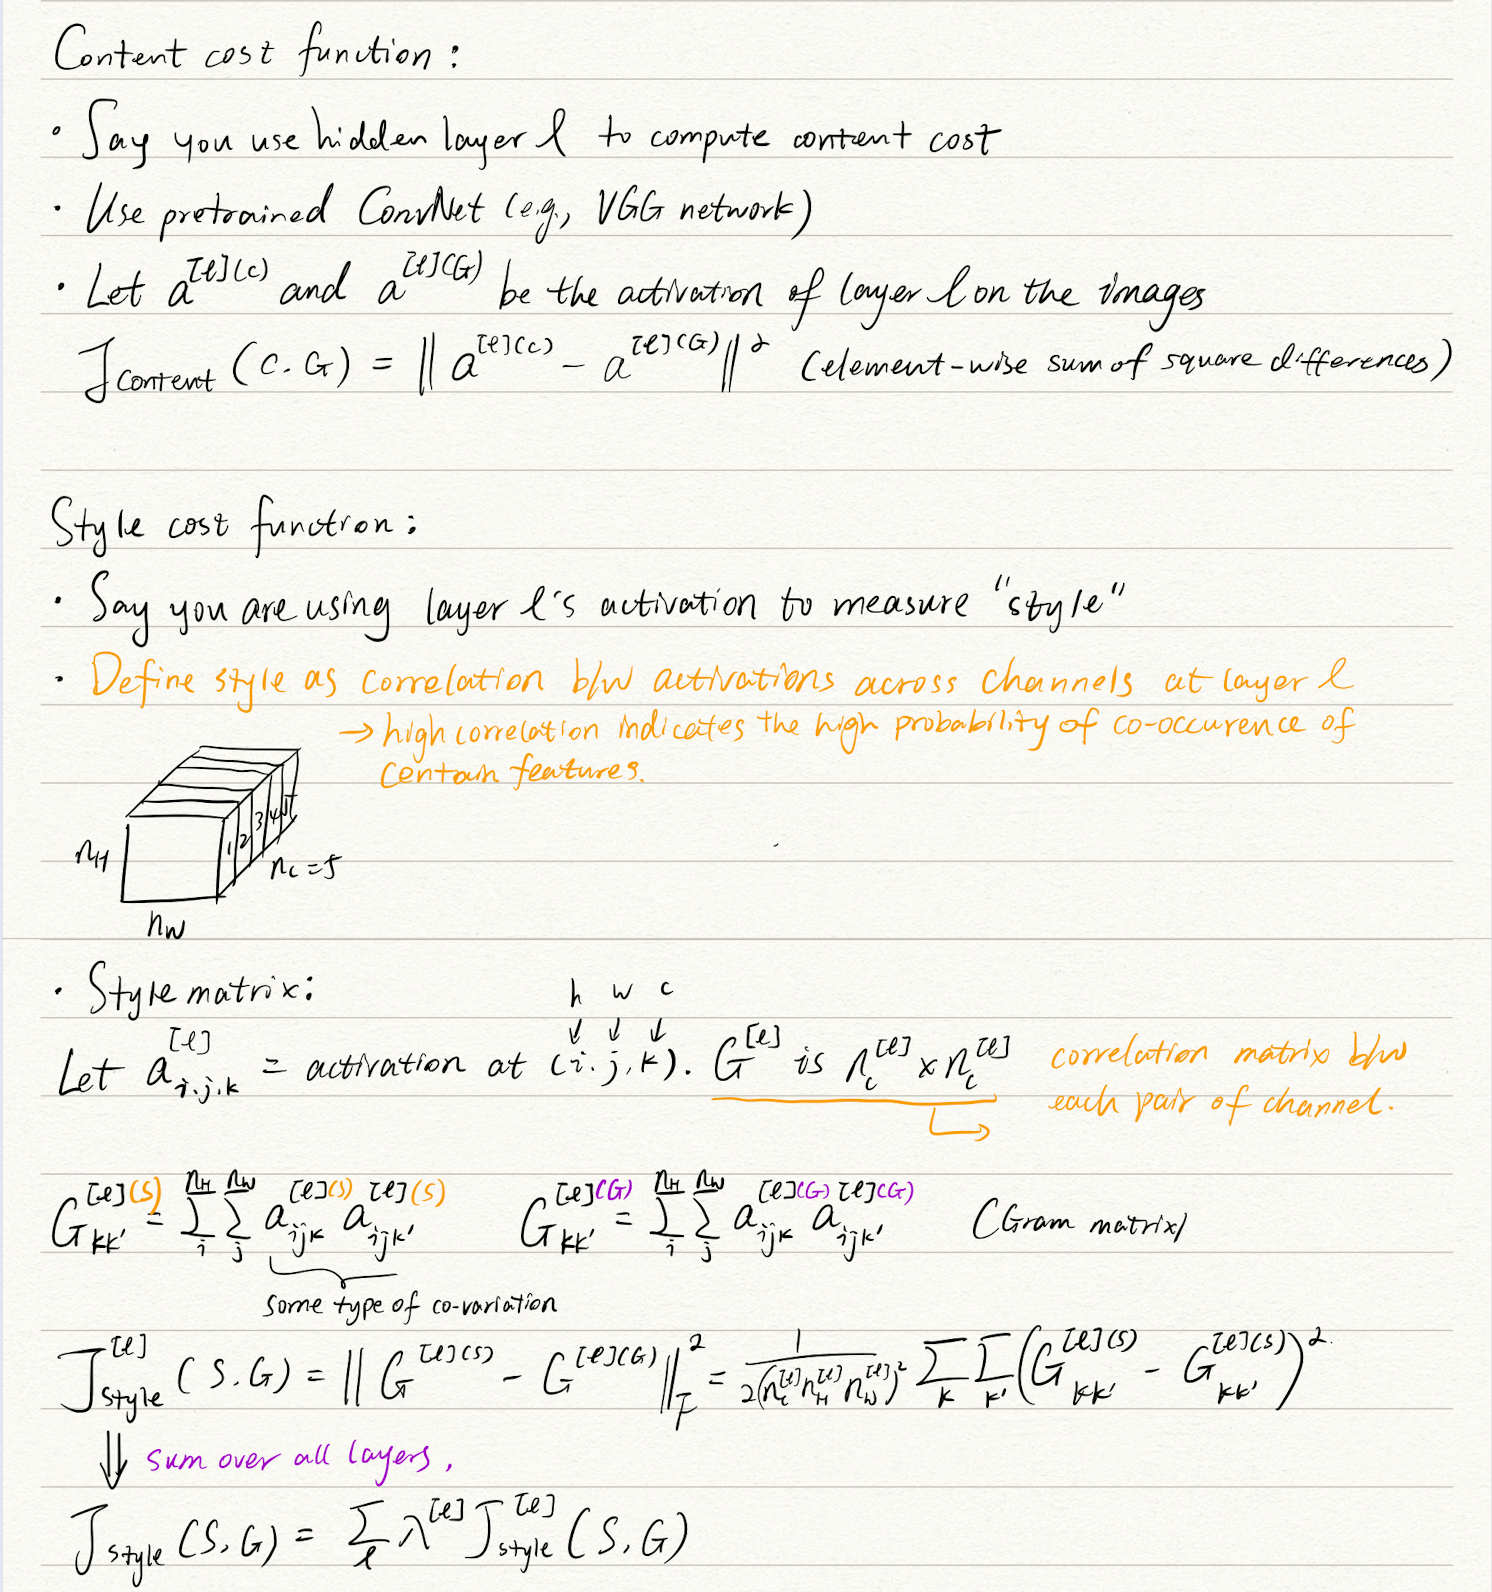 Content cost function:
• Say you use hidden layer l to compute content cost
• Use pretrained ConvNet (e.g., VGG network)
• Let a^{[l](C)} and a^{[l](G)} be the activation of layer l on the images
J_{content}(C, G) = || a^{[l](C)} - a^{[l](G)} ||^2 (element-wise sum of square differences)
Style cost function:
• Say you are using layer l's activation to measure "style"
• Define style as correlation b/w activations across channels at layer l
→ high correlation indicates the high probability of co-occurence of
certain features.
1 2 3 4 5
n_H
n_C = 5
n_W
• Style matrix:
h w c
↓ ↓ ↓
Let a^{[l]}_{i,j,k} = activation at (i, j, k). G^{[l]} is n_c^{[l]} × n_c^{[l]} correlation matrix b/w
each pair of channel.
G^{[l](S)}_{kk'} = Σ_i^{n_H} Σ_j^{n_W} a^{[l](S)}_{ijk} a^{[l](S)}_{ijk'} G^{[l](G)}_{kk'} = Σ_i^{n_H} Σ_j^{n_W} a^{[l](G)}_{ijk} a^{[l](G)}_{ijk'} (Gram matrix)
some type of co-variation
J^{[l]}_{style}(S, G) = || G^{[l](S)} - G^{[l](G)} ||^2_F = 1 / 2(n_c^{[l]} n_H^{[l]} n_W^{[l]})^2 Σ_k Σ_{k'} (G^{[l](S)}_{kk'} - G^{[l](S)}_{kk'})^2
⇓ sum over all layers,
J_{style}(S, G) = Σ_l λ^{[l]} J^{[l]}_{style}(S, G)